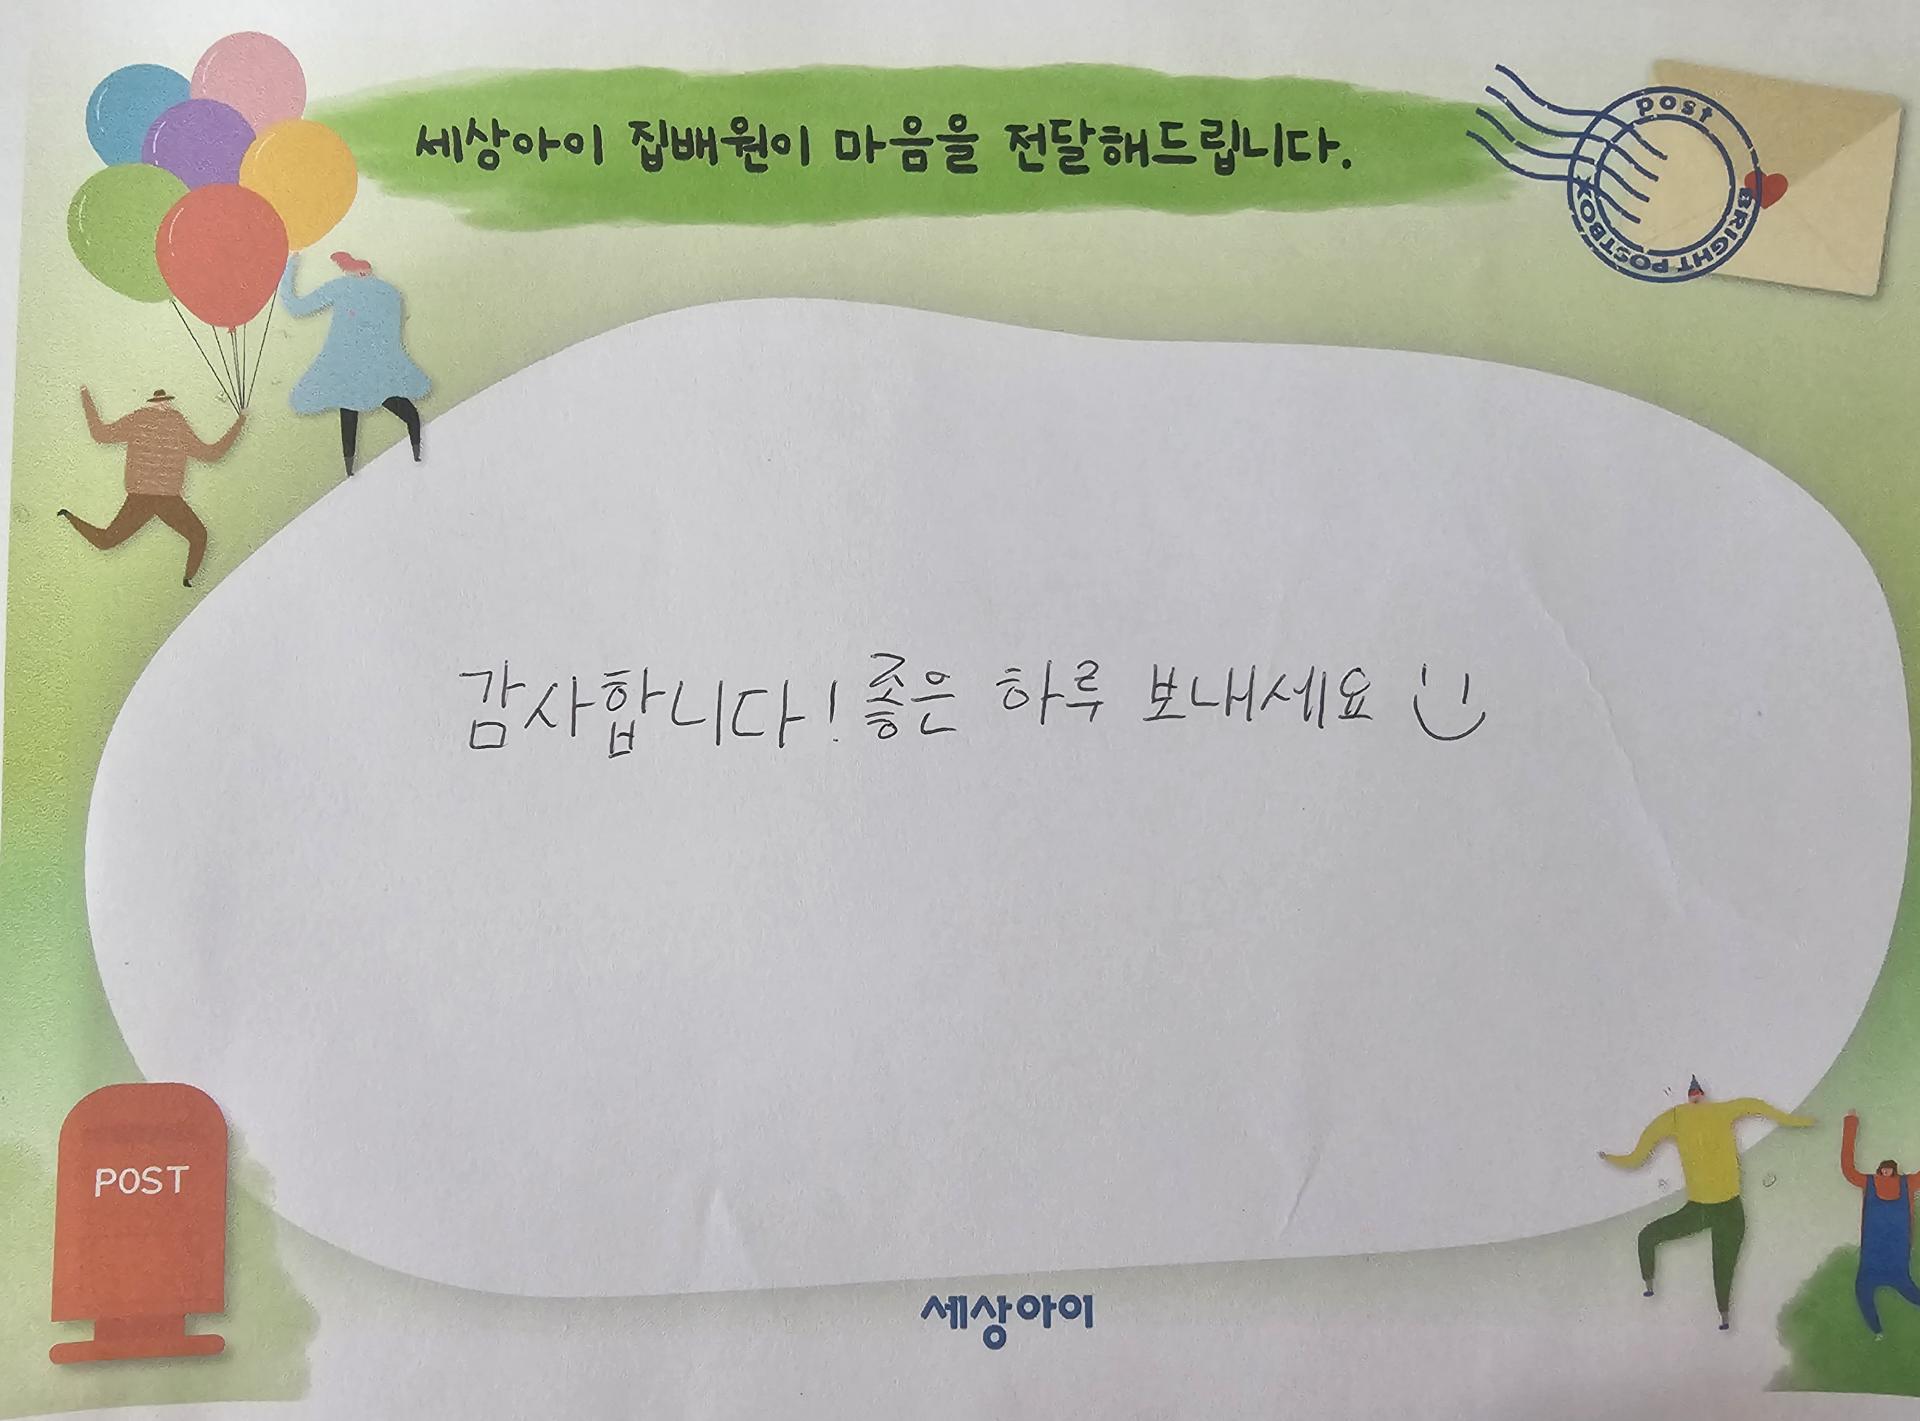 세상아이 집배원이 마음을 전달해드립니다.
post
BRIGHT POSTBOX
감사합니다! 좋은 하루 보내세요
POST
세상아이